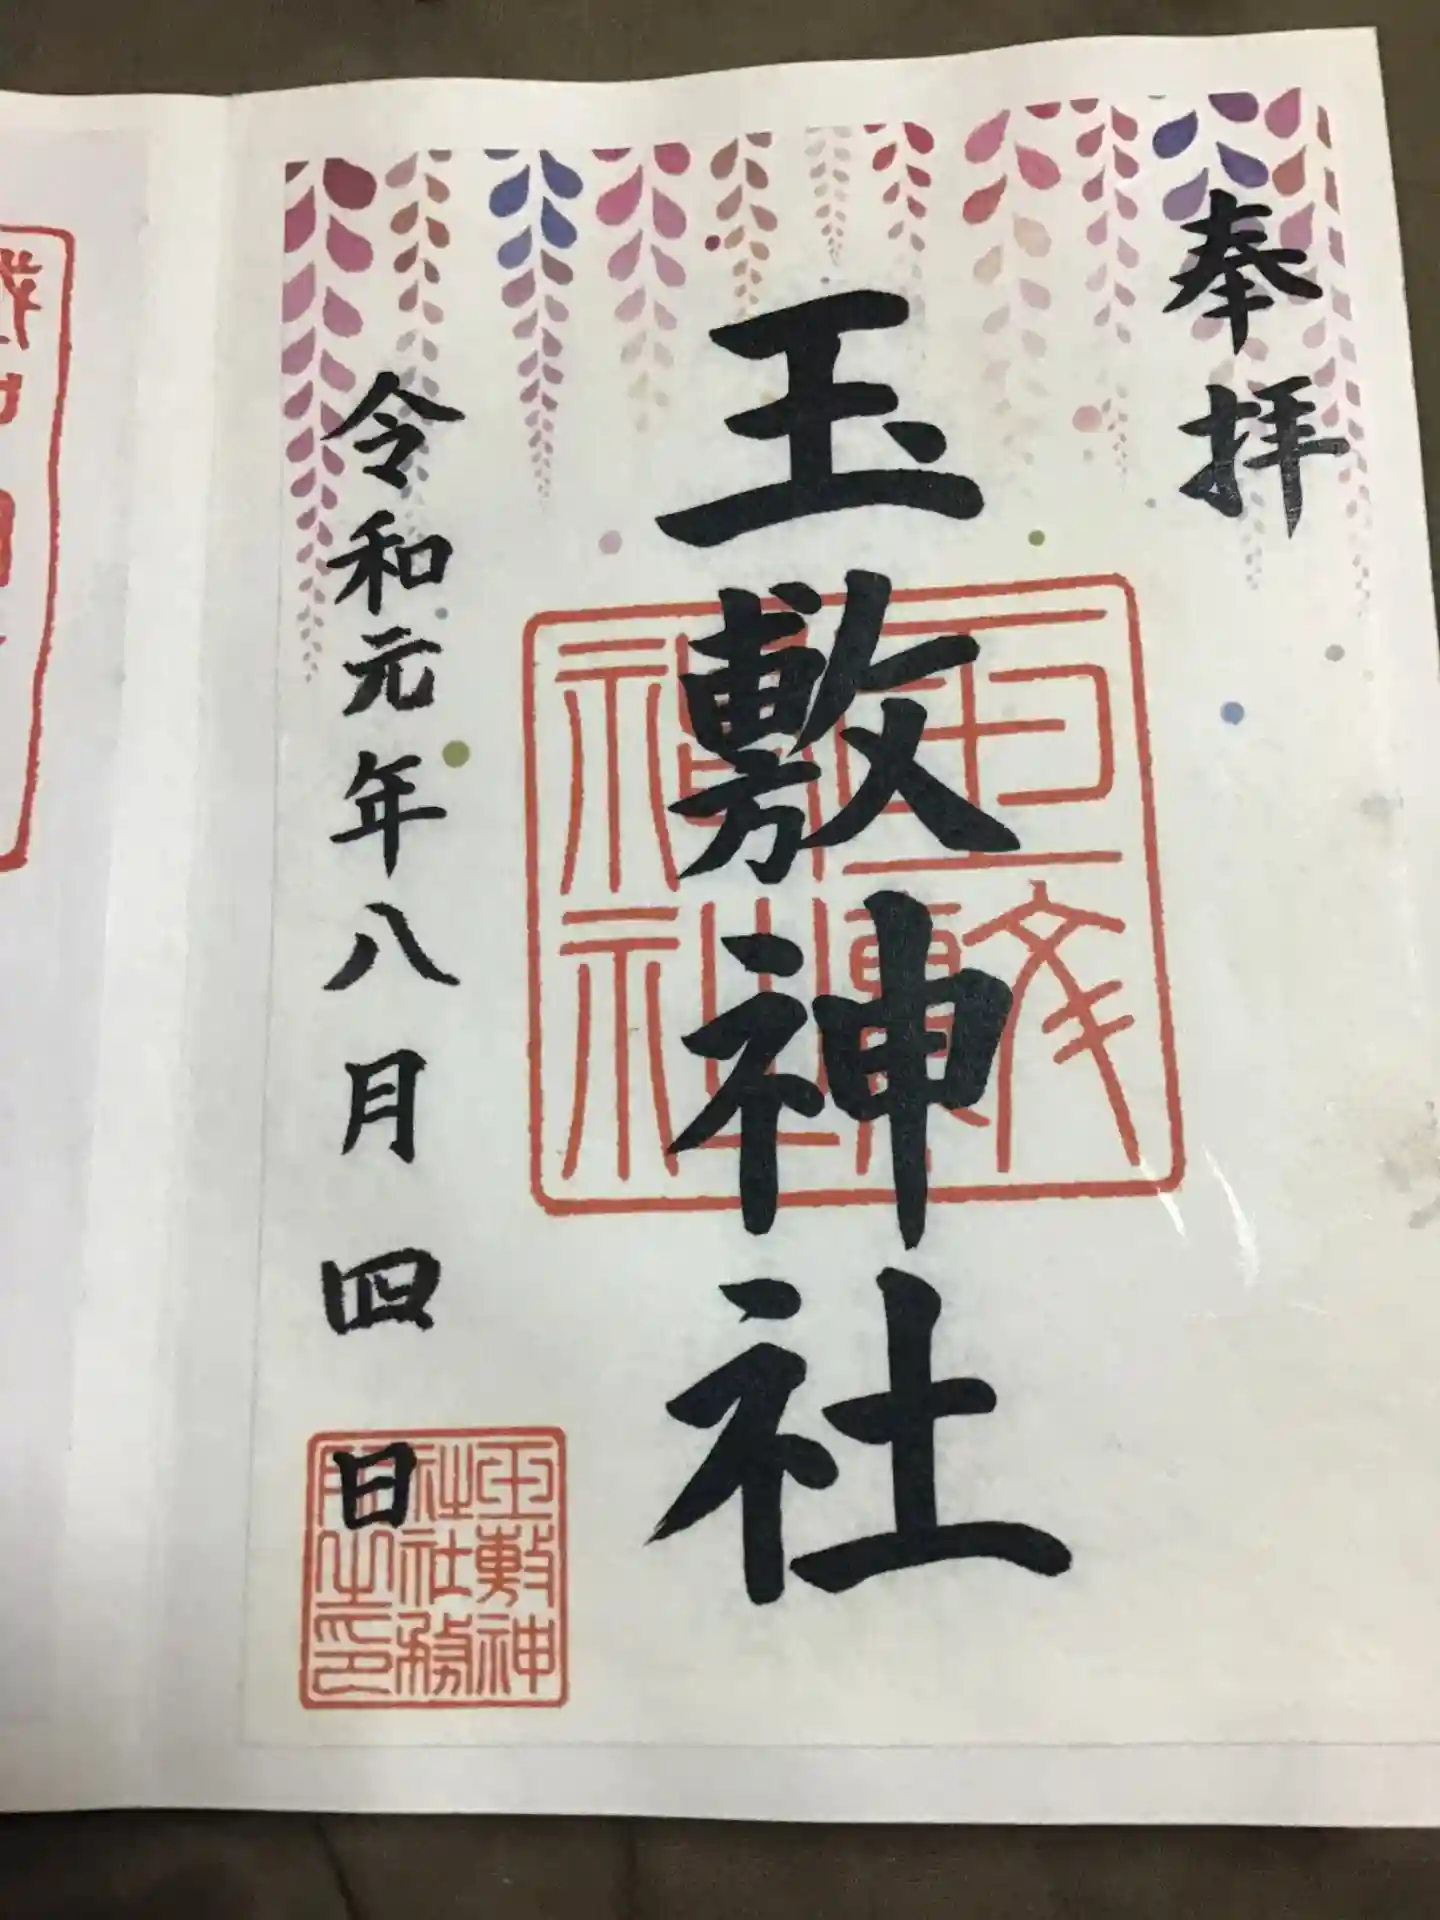 奉拝
玉敷神社
令和元年八月四日
玉敷
神社
玉敷神
社社務
所之印